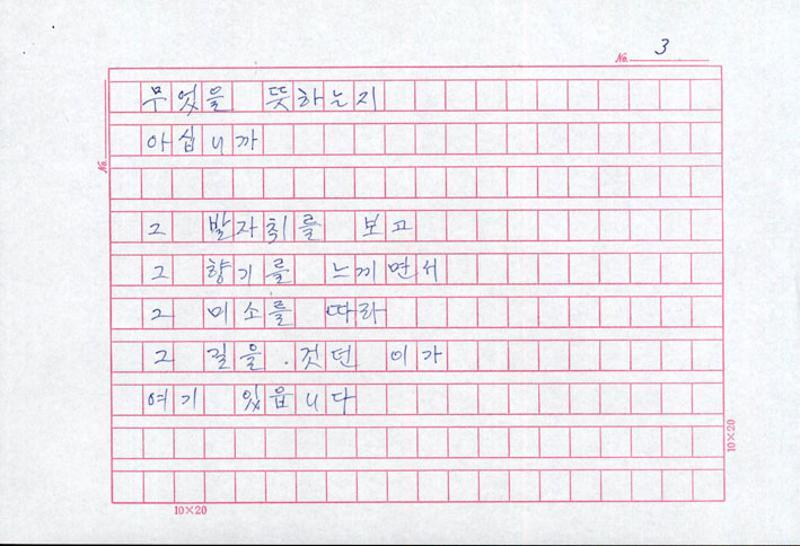 No. 3
무엇을 뜻하는지
아십니까
No.
그 발자취를 보고
그 향기를 느끼면서
그 미소를 따라
그 길을 것던 이가
여기 있읍니다
10×20
10×20